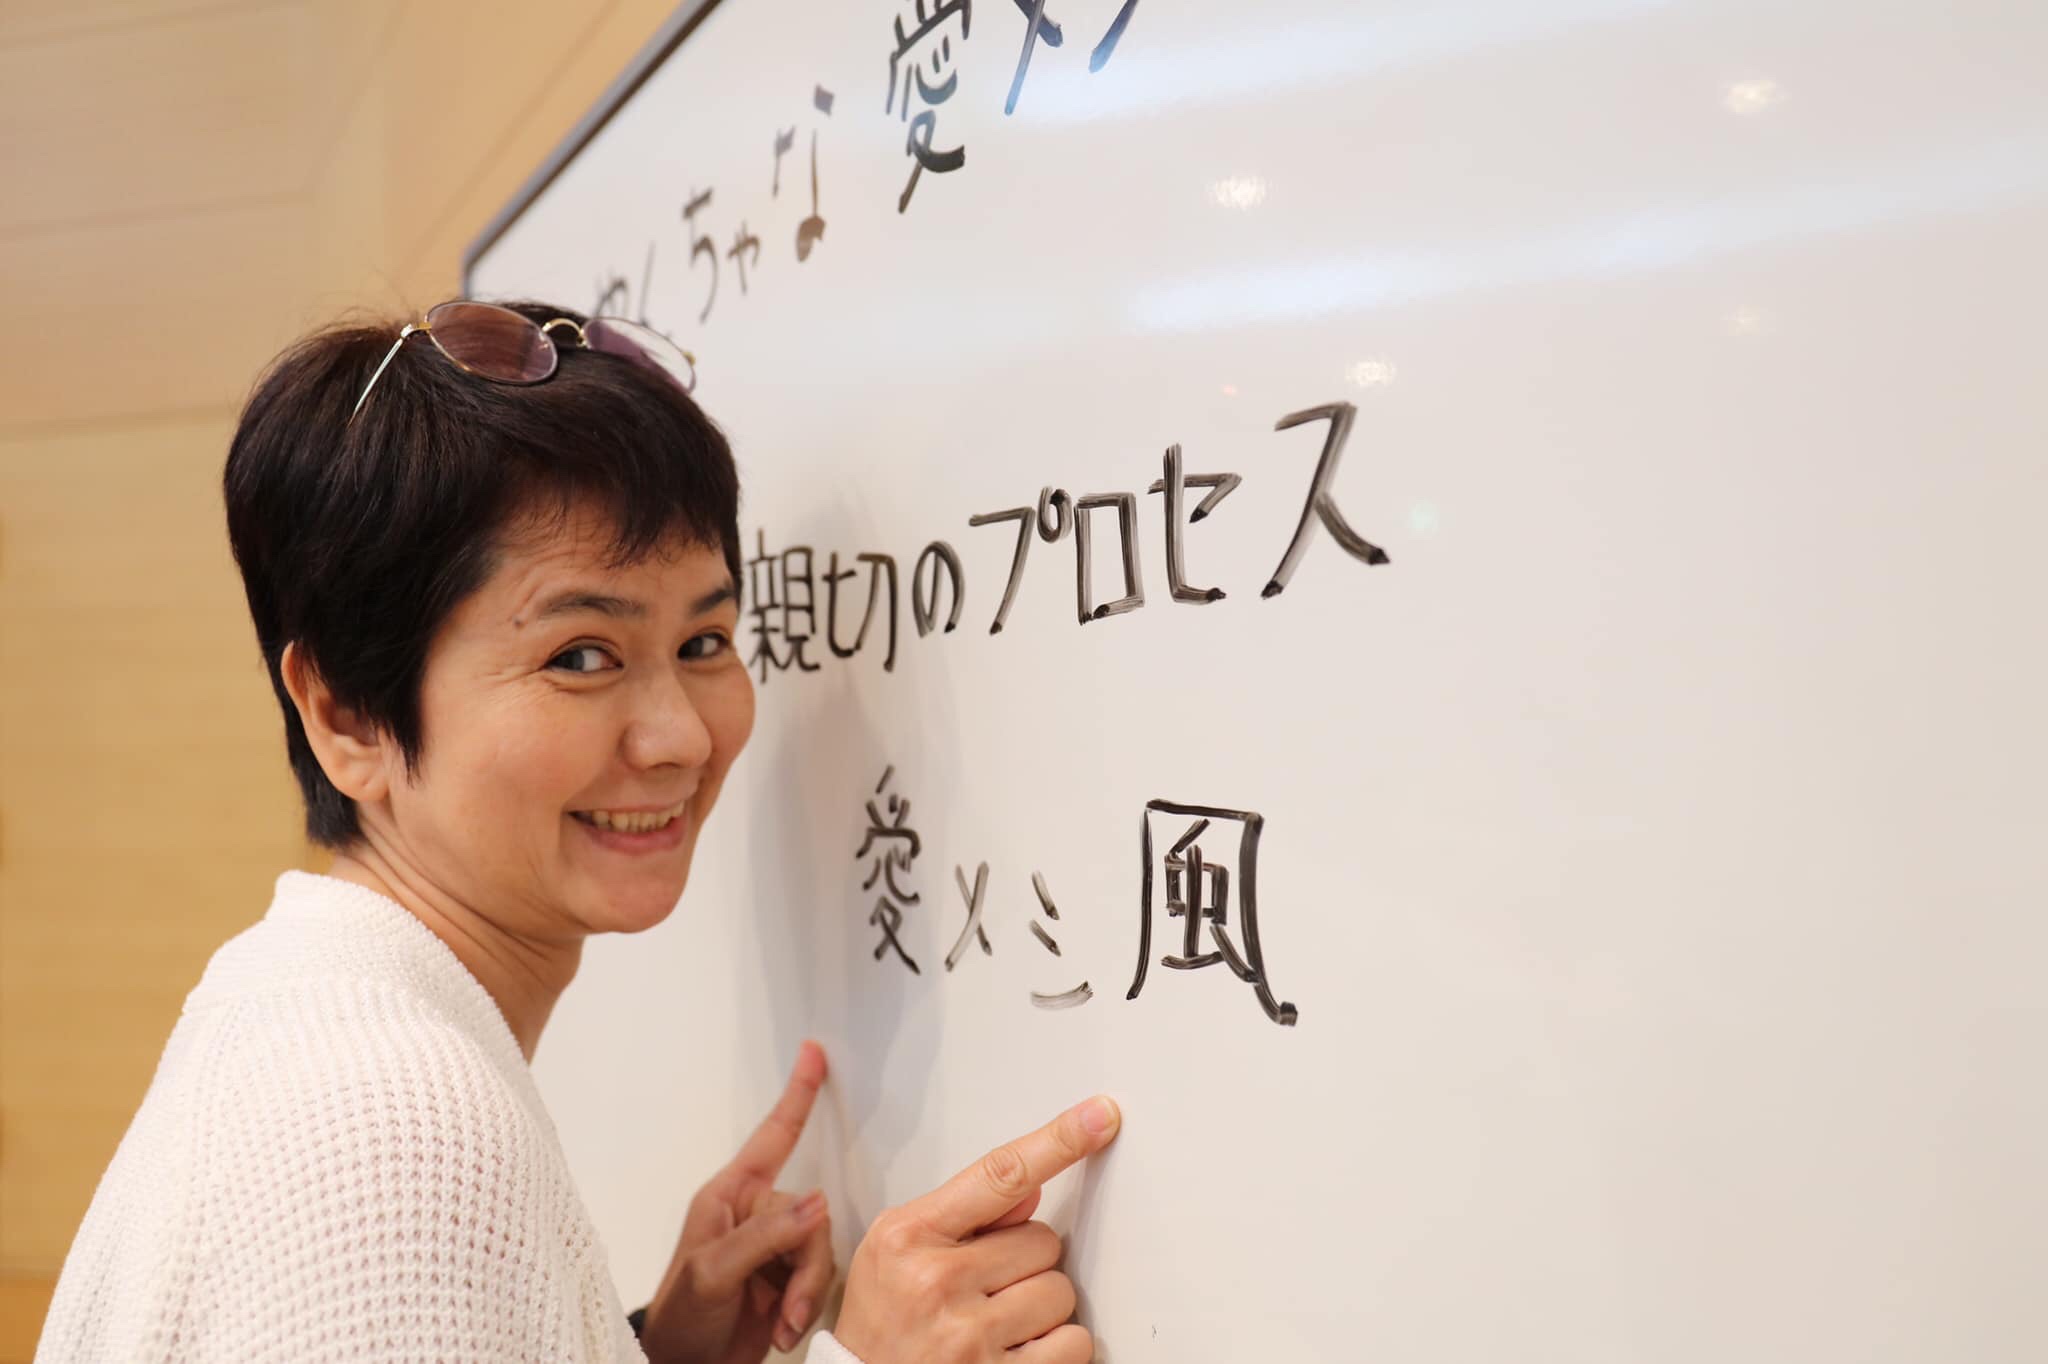 やんちゃな愛メ
親切のプロセス
愛メミ風